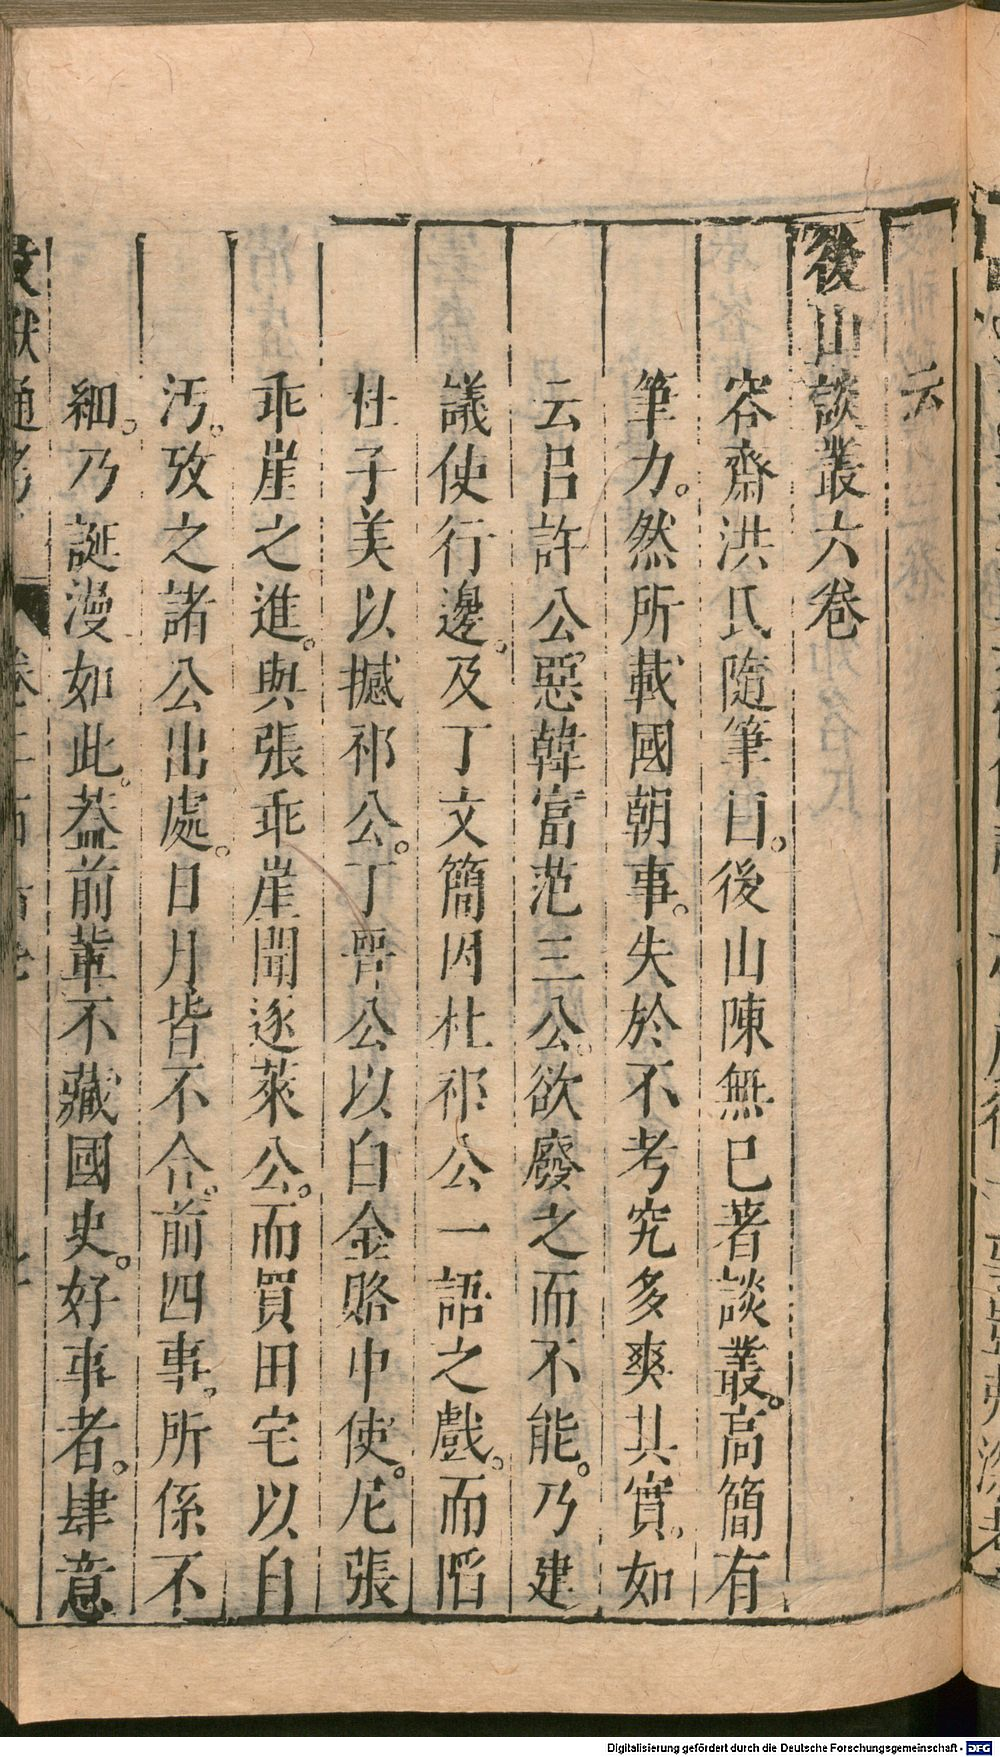 云
後山談叢六卷
容齋洪氏隨筆曰。後山陳無已著談叢。高簡有
筆力。然所載國朝事。失於不考究多爽其實。如
云呂許公惡韓富范三公。欲廢之而不能。乃建
議使行邊。及丁文簡因杜祁公一語之戲。而陷
杜子美以撼祁公。丁晋公以白金賂中使。尼張
乖崖之進。與張乖崖聞逐萊公。而買田宅以自
汚。攷之諸公出處。日月皆不合。前四事。所係不
細。乃誕漫如此。葢前輩不藏國史。好事者。肆意
Digitalisierung gefördert durch die Deutsche Forschungsgemeinschaft - DFG